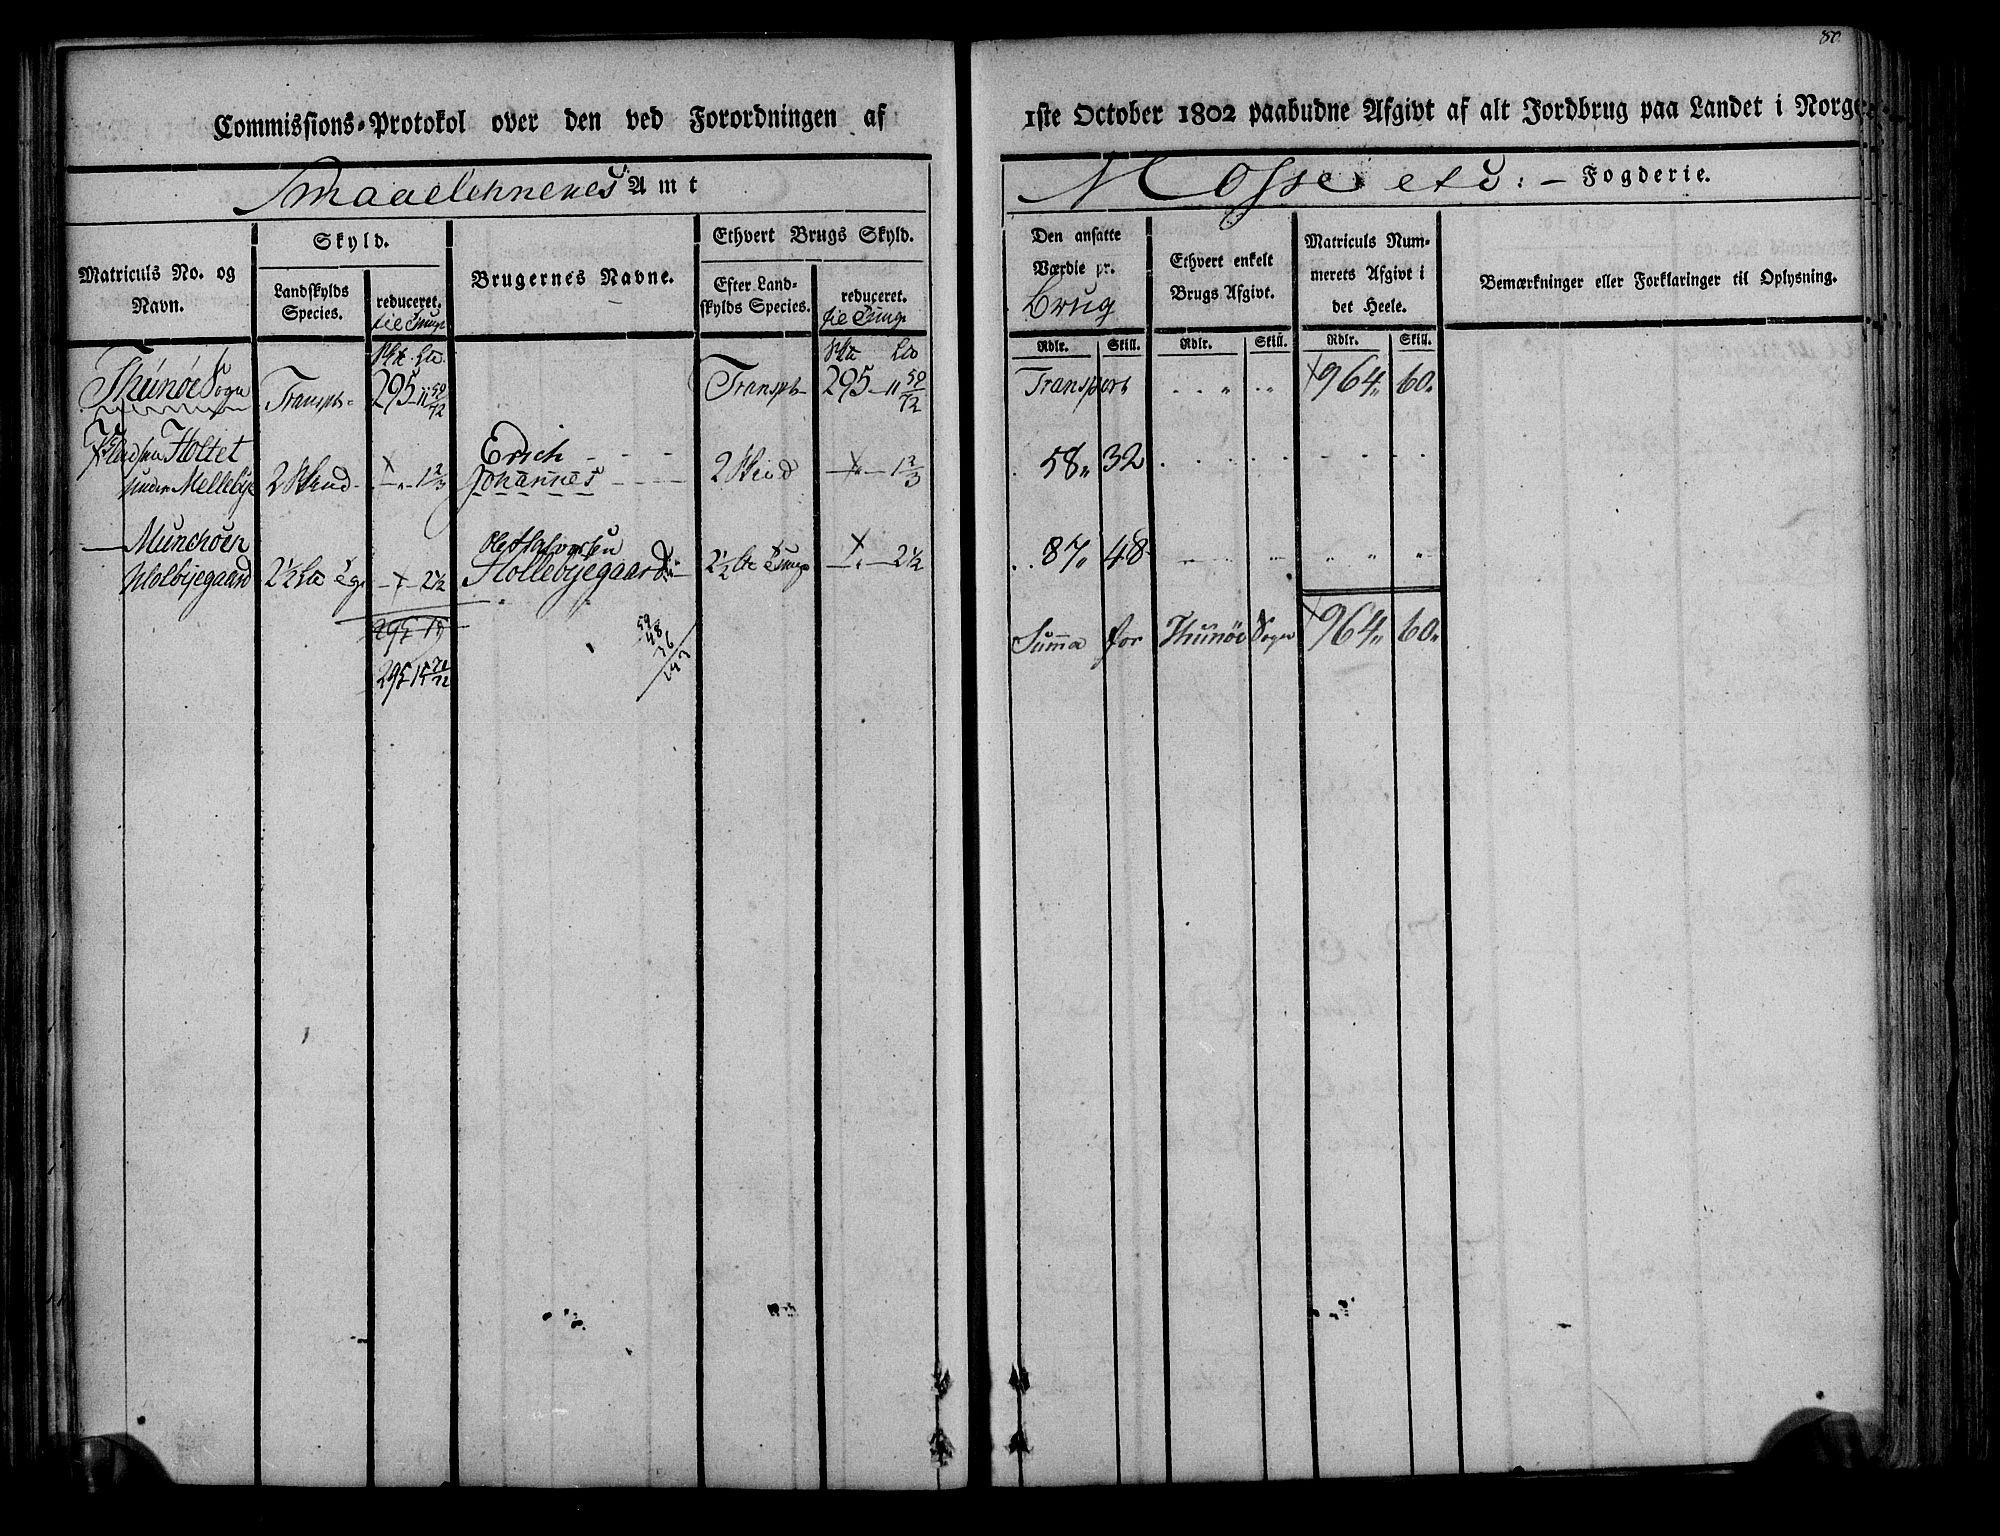 80.
Commissions-Protokol over den ved Forordningen af 1ste October 1802 paabudne Afgivt af alt Jordbrug paa Landet i Norge.
Smaalehnenes Amt
Mosse etc: – Fogderie.
Matriculs No. og Navn.
Skyld.
Landskylds Species.
reduceret.
til Tunge
Brugernes Navne.
Ethvert Brugs Skyld.
Efter Landskylds Species.
reduceret.
til Tunge
Den ansatte Værdie pr. Brug
Rdlr. Skill.
Ethvert enkelt Brugs Afgivt.
Rdlr. Skill.
Matriculs Nummerets Afgivt i det Heele.
Rdlr. Skill.
Bemærkninger eller Forklaringer til Oplysning.
Thunöe Sogn Transpt 295 – 11 50/72 Transpt 295 – 11 50/72 Transport 964 60
Pladsen Holtet
under Mellebye 2 Skind 1 2/3 Erich Johannes 2 Skind 1 2/3 58 32
Munchöen
Holbyegaard 2½ 2½ Ole Halvorsen
Hollebyegaard 2½ Tunge 2½ 87 48
295 15
295 15 70/72
59
48
36
143
Summa for Thunöe Sogn 964 60